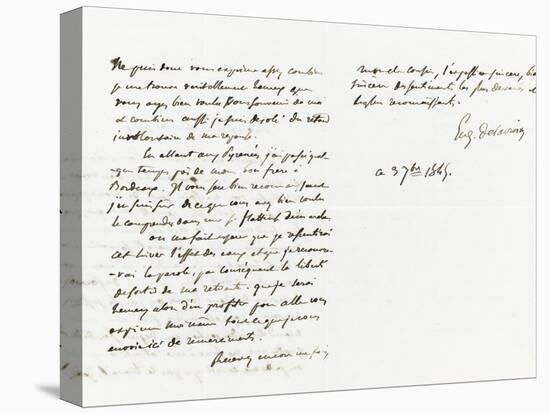 Ne puis donc vous exprimer assez combien
je me trouve véritablement heureux que
vous ayez bien voulu vous souvenir de moi
et combien aussi je suis désolé du retard
involontaire de ma réponse.
En allant aux Pyrénées j'ai passé quel-
que temps près de mon frère à
Bordeaux. Je vous suis bien reconnaissant
de ce que vous avez bien voulu
le comprendre dans une si flatteuse
on me fait espérer que je ressentirai
cet hiver l'effet des eaux et que je recouvre-
rai la parole, par conséquent la liberté
de sortir de ma retraite. que je serai
heureux alors d'en profiter pour aller vous
exprimer moi même tout ce que je vous
envoie ici de remerciments.
Recevez encore une fois
mon cher cousin, l'expression sincère, bien
sincère des sentiments les plus dévoués et
les plus reconnaissants.
Eug. Delacroix
ce 3 7bre 1845.